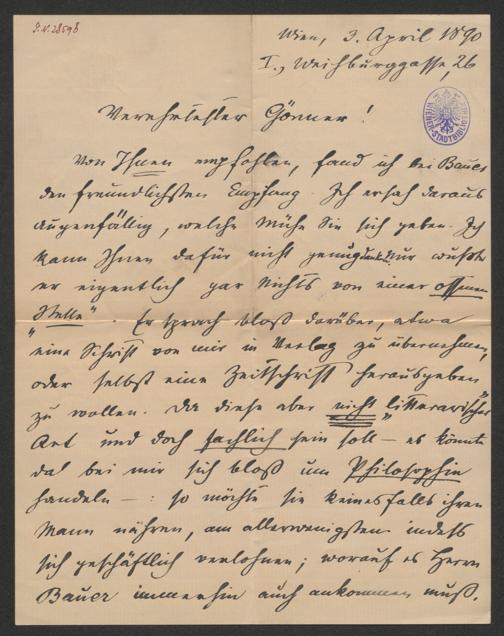 J.N. 28598
Wien, 3. April 1890
I., Weihburggasse, 26
WIENER-STADTBIBLIOTHEK
Verehrtester Görner!
Von Ihnen empfohlen, fand ich bei Bauer
den freundlichsten Empfang. Ich ersah daraus
augenfällig, welche Mühe Sie sich geben. Ich
kann Ihnen dafür nicht genug danken. Nur wußte
er eigentlich gar Nichts von einer „offenen
Stelle“. Er sprach bloß darüber, etwa
eine Schrift von mir in Verlag zu übernehmen,
oder selbst eine Zeitschrift herausgeben
zu wollen. Da diese aber nicht „litterarischer“
Art und doch fachlich sein soll — es könnte
da bei mir sich bloß um Philosophie
handeln — : so möchte sie keinesfalls ihren
Mann nähren, am allerwenigsten indeß
sich geschäftlich verlohnen; worauf es Herrn
Bauer immerhin auch ankommen muß.